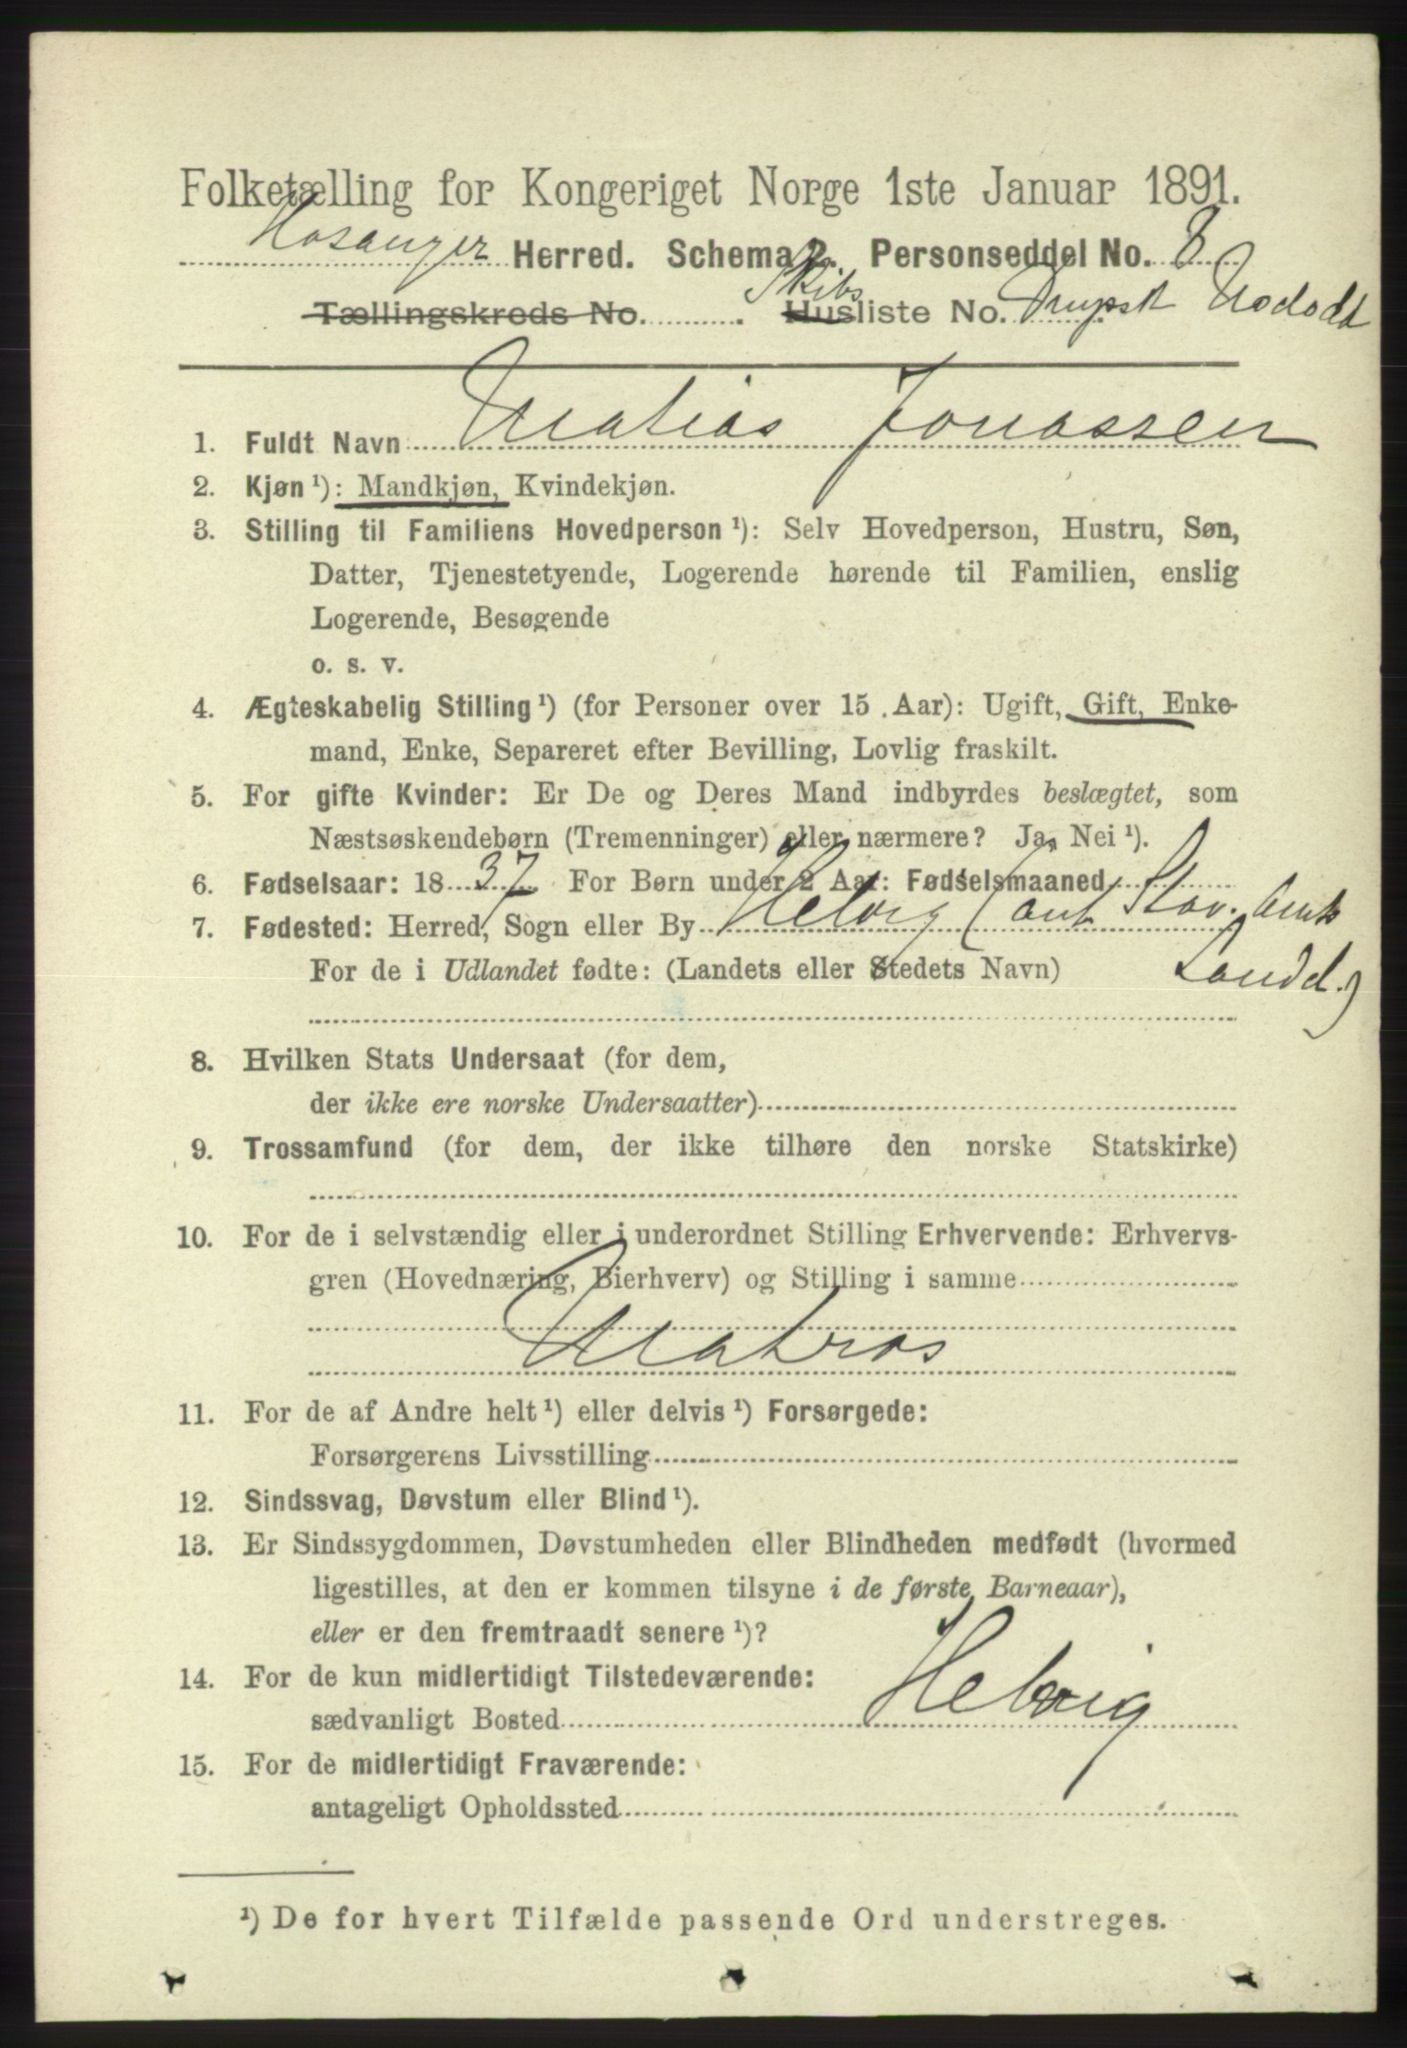 Folketælling for Kongeriget Norge 1ste Januar 1891.
Hosanger Herred. Schema 2. Personseddel No. 8
Tællingskreds No. Skibs Husliste No.
1. Fuldt Navn Matias Jonassen
2. Kjøn ¹): Mandkjøn, Kvindekjøn.
3. Stilling til Familiens Hovedperson ¹): Selv Hovedperson, Hustru, Søn,
Datter, Tjenestetyende, Logerende hørende til Familien, enslig
Logerende, Besøgende
o. s. v.
4. Ægteskabelig Stilling ¹) (for Personer over 15 Aar): Ugift, Gift, Enke-
mand, Enke, Separeret efter Bevilling, Lovlig fraskilt.
5. For gifte Kvinder: Er De og Deres Mand indbyrdes beslægtet, som
Næstsøskendebørn (Tremenninger) eller nærmere? Ja, Nei ¹).
6. Fødselsaar: 1837 For Børn under 2 Aar: Fødselsmaaned
7. Fødested: Herred, Sogn eller By Helvig (ant Stav. Amts
For de i Udlandet fødte: (Landets eller Stedets Navn) Landd.)
8. Hvilken Stats Undersaat (for dem,
der ikke ere norske Undersaatter)
9. Trossamfund (for dem, der ikke tilhøre den norske Statskirke)
10. For de i selvstændig eller i underordnet Stilling Erhvervende: Erhvervs-
gren (Hovednæring, Bierhverv) og Stilling i samme
Matros
11. For de af Andre helt ¹) eller delvis ¹) Forsørgede:
Forsørgerens Livsstilling
12. Sindssvag, Døvstum eller Blind ¹).
13. Er Sindssygdommen, Døvstumheden eller Blindheden medfødt (hvormed
ligestilles, at den er kommen tilsyne i de første Barneaar),
eller er den fremtraadt senere ¹)?
14. For de kun midlertidigt Tilstedeværende:
sædvanligt Bosted Helvig
15. For de midlertidigt Fraværende:
antageligt Opholdssted
¹) De for hvert Tilfælde passende Ord understreges.